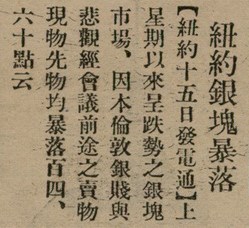 紐約銀塊暴落
【紐約十五日發電通】上
星期以來呈跌勢之銀塊
市場、因本倫敦銀賤與
悲觀經會議前途之賣物
現物先物均暴落百四、
六十點云